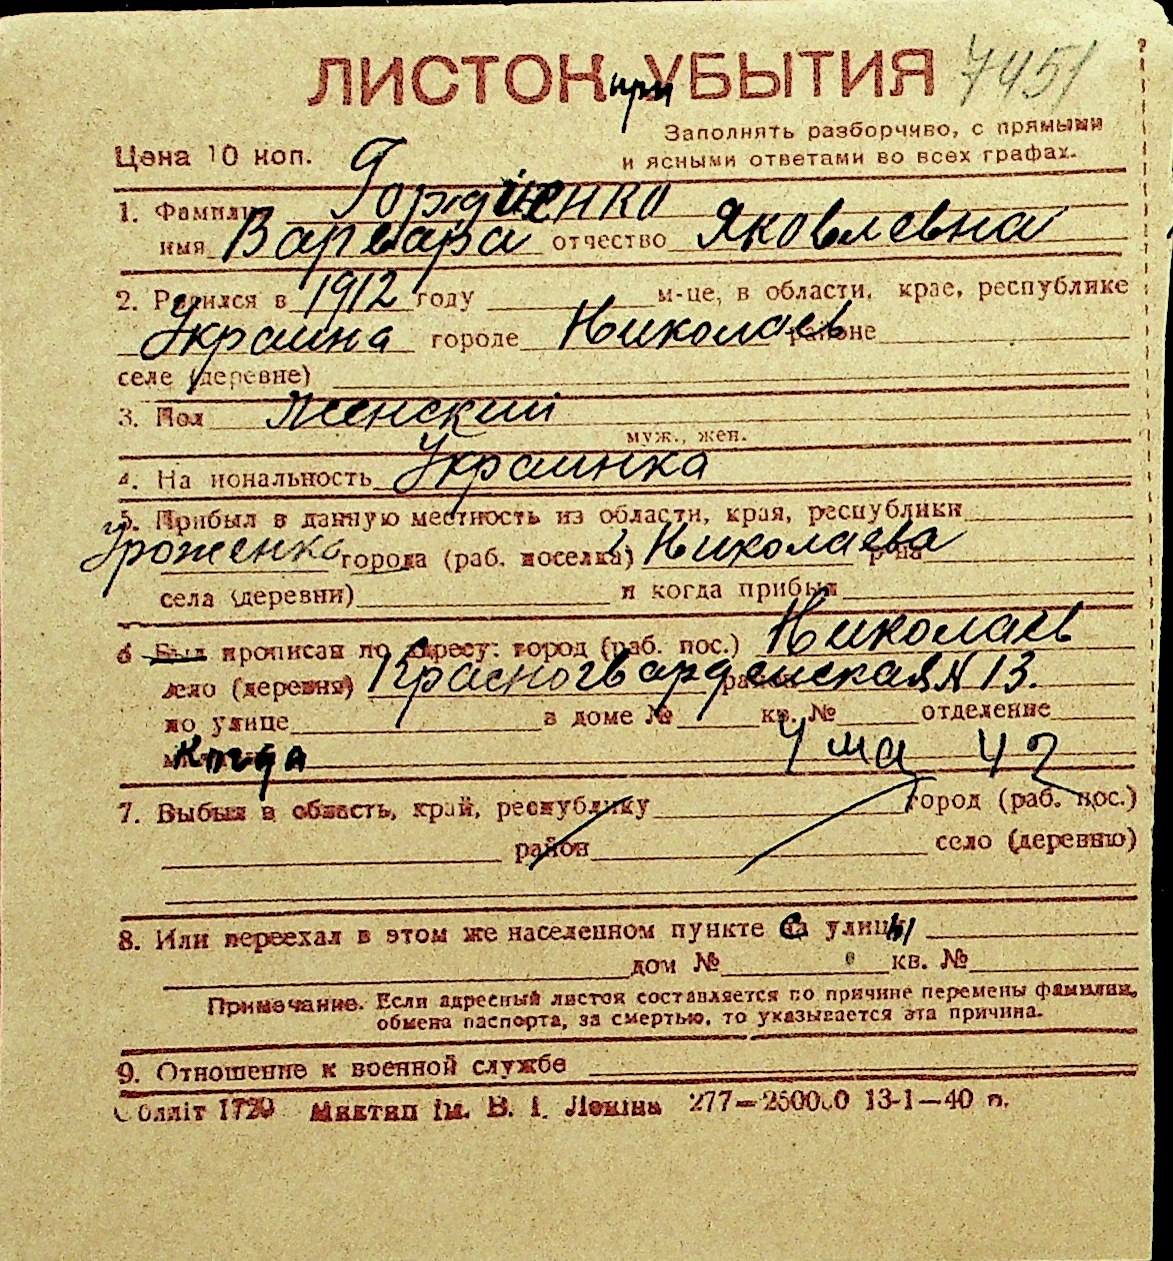 ЛИСТОК при УБЫТИЯ 7451
Заполнять разборчиво, с прямыми
Цена 10 коп. и ясными ответами во всех графах.
1. Фамилия Гордиенко
имя Варвара отчество Яковлевна
2. Родился в 1912 году м-це, в области, крае, республике
Украина городе Николаев районе
селе (деревне)
3. Пол Женский
муж., жен.
4. Национальность Украинка
5. Прибыл в данную местность из области, края, республики
Уроженка города (раб. поселка) г. Николаева р-на
села (деревни) и когда прибыл
6 Был прописан по адресу: город (раб. пос.) Николаев
село (деревня) Красногвардейская N 13. район
по улице в доме № кв. № отделение
когда 4 мая 42
7. Выбыл в область, край, республику город (раб. пос.)
район село (деревню)
8. Или переехал в этом же населенном пункте с улицы
дом № кв. №
Примечание. Если адресный листок составляется по причине перемены фамилии,
обмена паспорта, за смертью, то указывается эта причина.
9. Отношение к военной службе
Обллiт 1720 Миктип iм. В. I. Ленiна 277—250000 13-1—40 п.